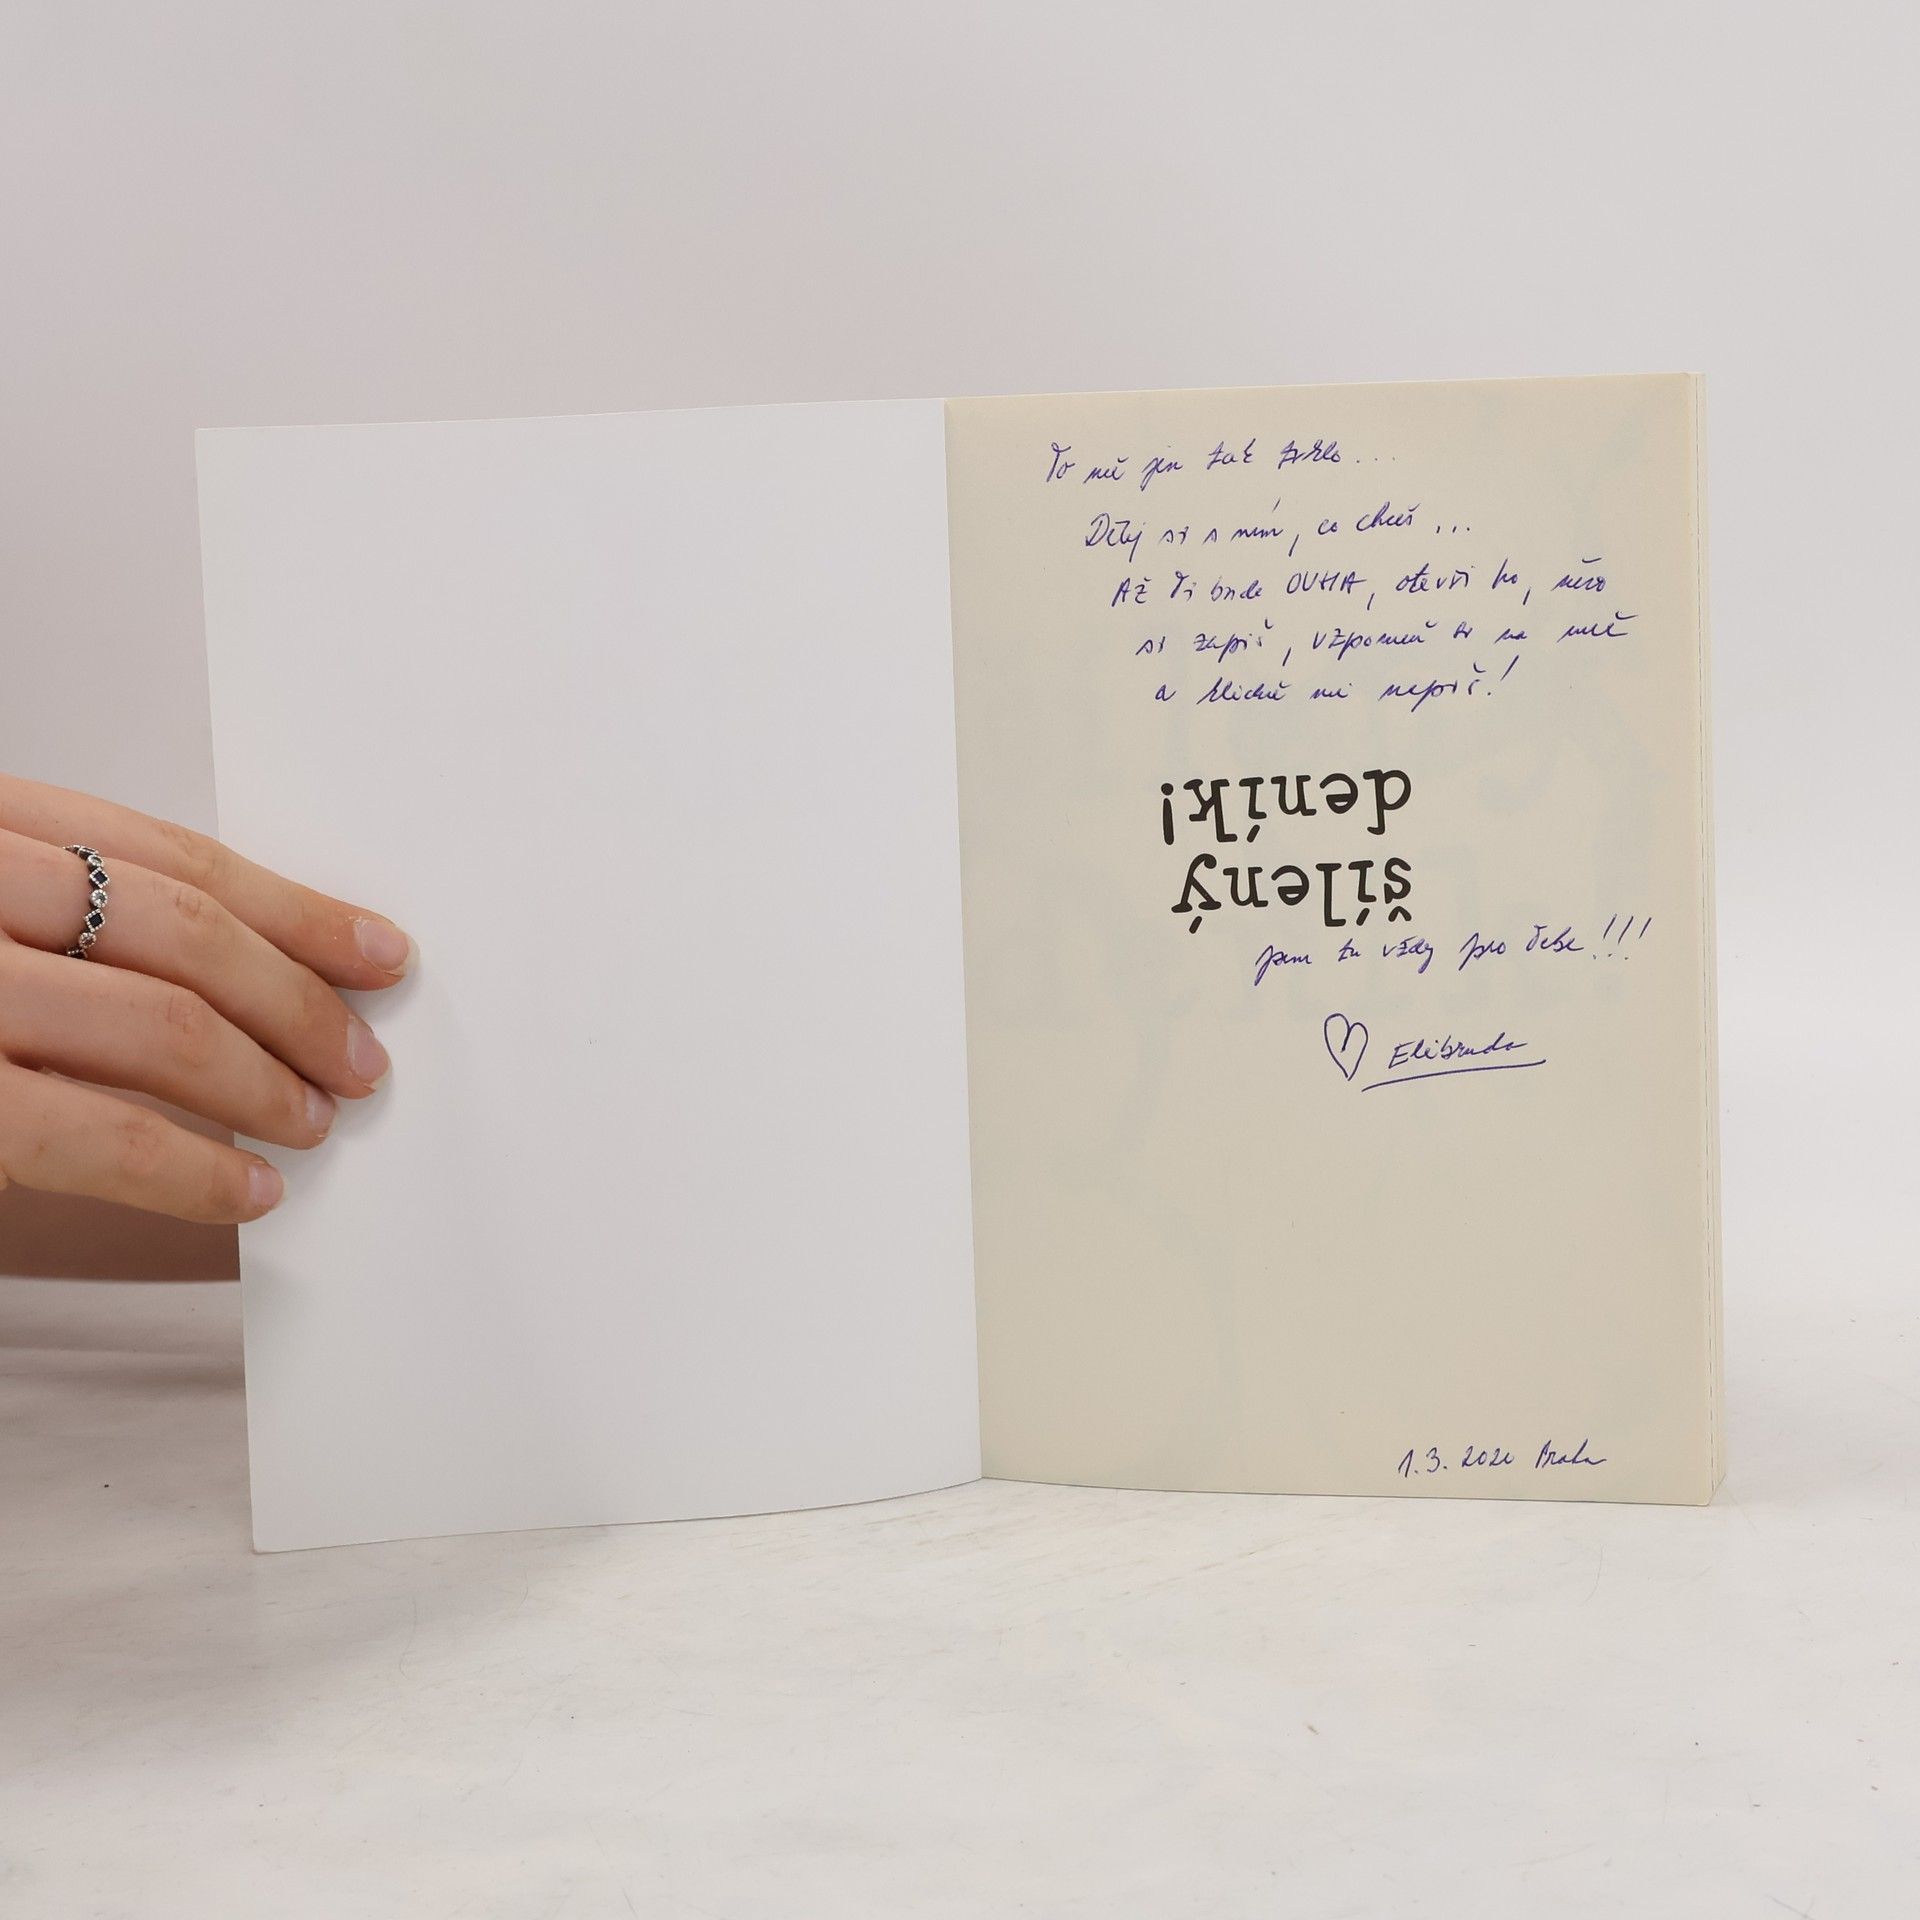 To mě jen tak trklo...
Dělej si s ním, co chceš...
Až Ti bude OUHA, otevři ho, něco
si zapiš, vzpomeň si na mě
a klidně mi napiš!
šílený
deník!
jsem tu vždy pro Tebe!!!
1.3. 2020 Praha